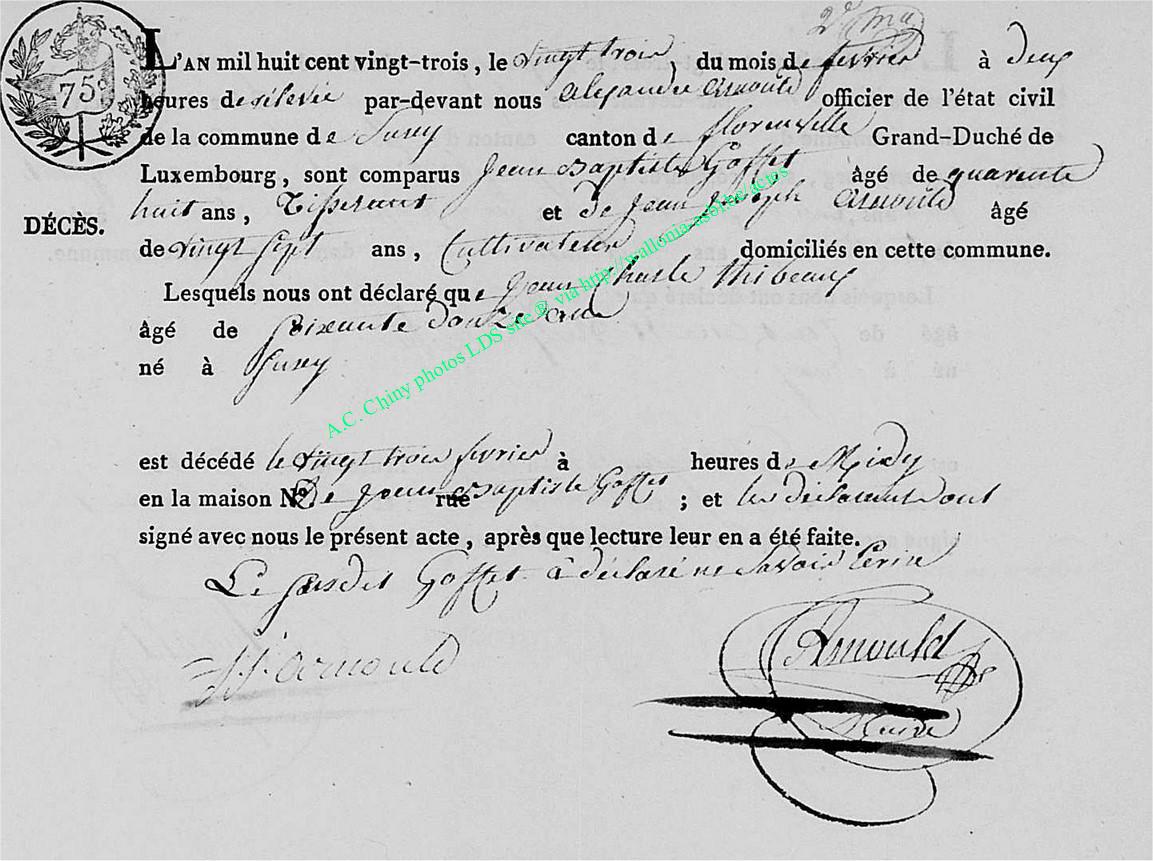 75c
L'AN mil huit cent vingt-trois, le vingt trois, du mois de fevrier à deux
heures de rélevée par-devant nous alexandre arnould officier de l'état civil
de la commune de Suxy canton de florenville Grand-Duché de
Luxembourg, sont comparus jean Baptiste Goffet âgé de quarente
huit ans, Tisserant et de jean joseph Arnould âgé
DÉCÈS.
de vingt sept ans, Cultivateur domiciliés en cette commune.
Lesquels nous ont déclaré que jean Charle thibeaux
âgé de soixante douze ans
né à Suxy
A.C. Chiny photos LDS site © via http://wallonia-asbl.be/actes
est décédé le vingt trois fevrier à heures de Midy
en la maison No De jean rue Baptiste Goffet ; et les déclarant ont
signé avec nous le présent acte, après que lecture leur en a été faite.
Le susdit Goffet à déclaré ne savoir Ecrire
arnould
Arnould
Maire